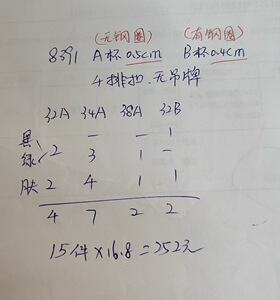 (无钢圈) (有钢圈)
8391 A杯0.5cm B杯0.4cm
4排扣.无吊牌
32A 34A 38A 32B
黑 — — 1
绿 2 3 1 —
肤 2 4 1 1
4 7 2 2
15件×16.8=252元